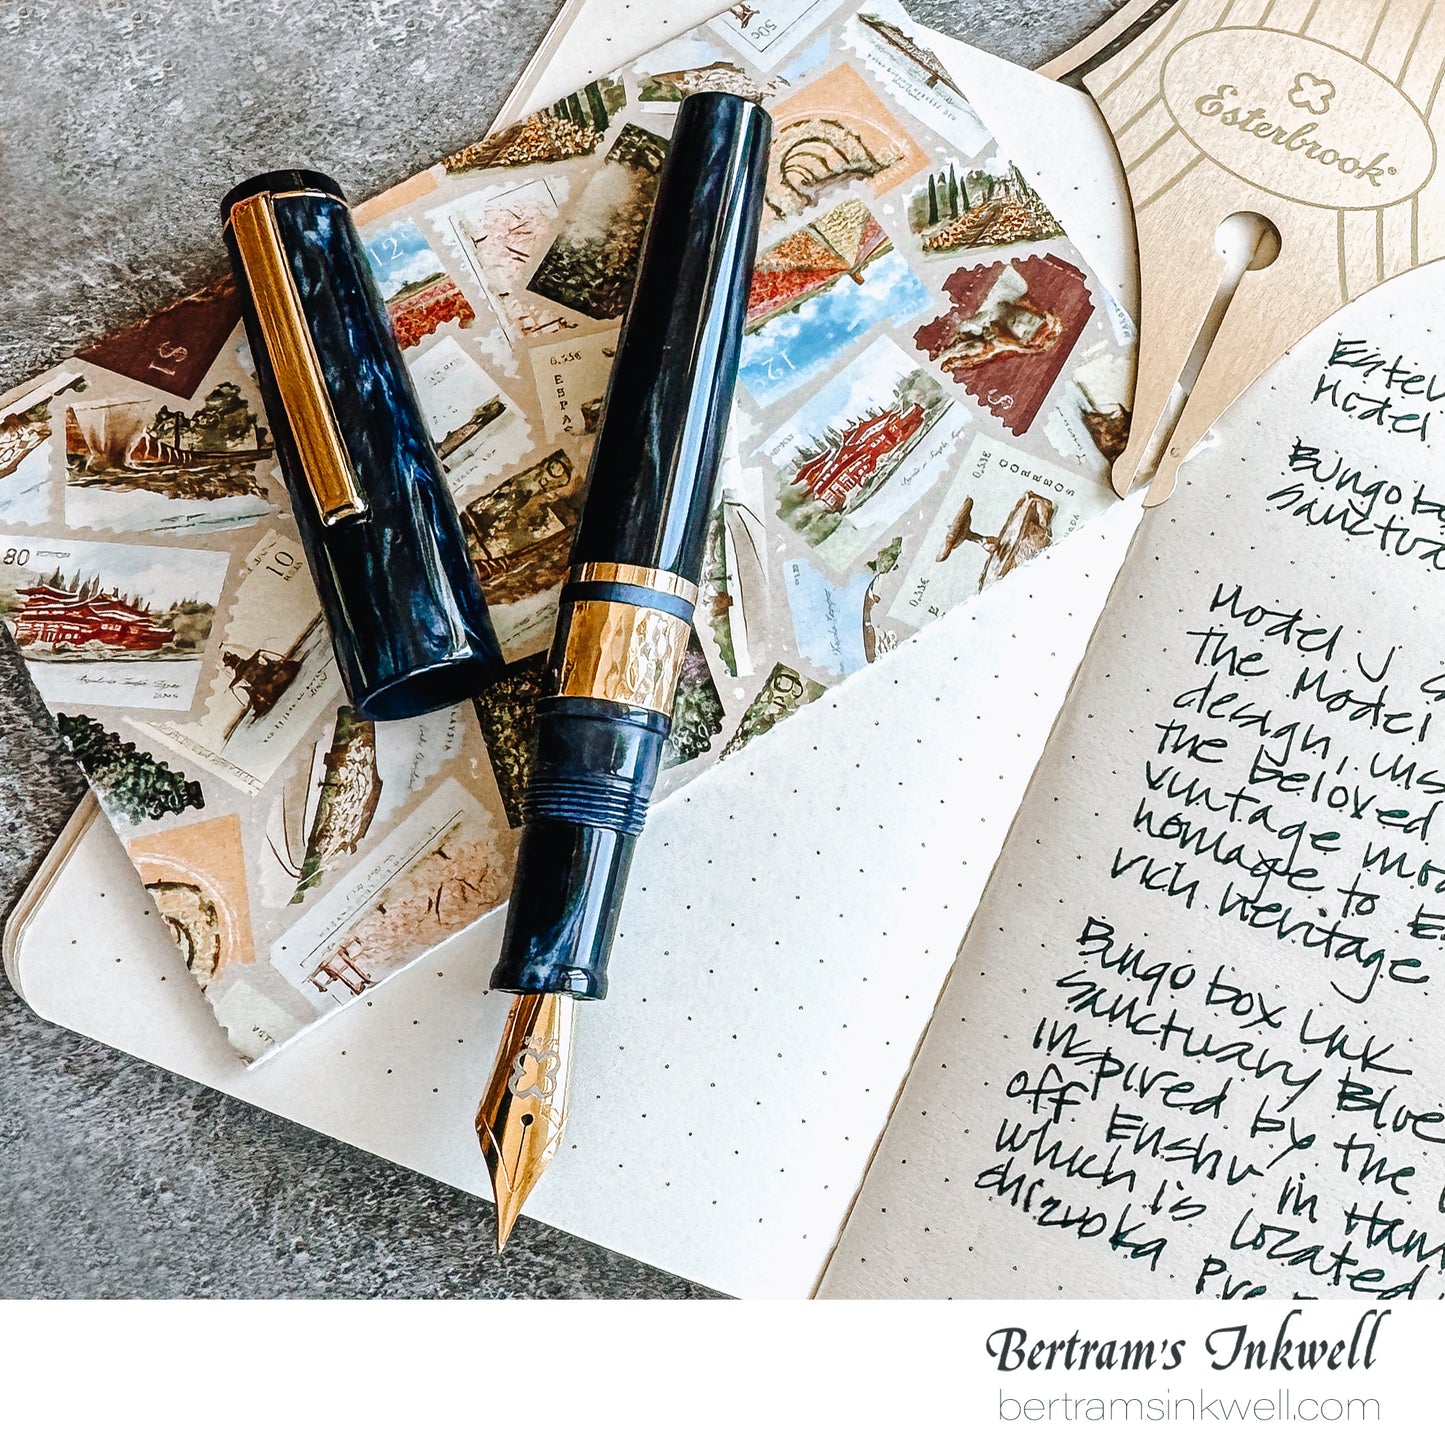 50c
Esterbrook®
12c
1S
0.55€
ESPAÑ
12
1S
0.55€
CORREOS
80
10
Model
Bungobox
Sanctua
Model J
The Model
design, ins
the beloved
vintage mod
homage to Es
rich heritage
Bungo box ink
Sanctuary Blue
inspired by the
off Enshu in Ham
which is located
Shizuoka Pre
Bertram's Inkwell
bertramsinkwell.com